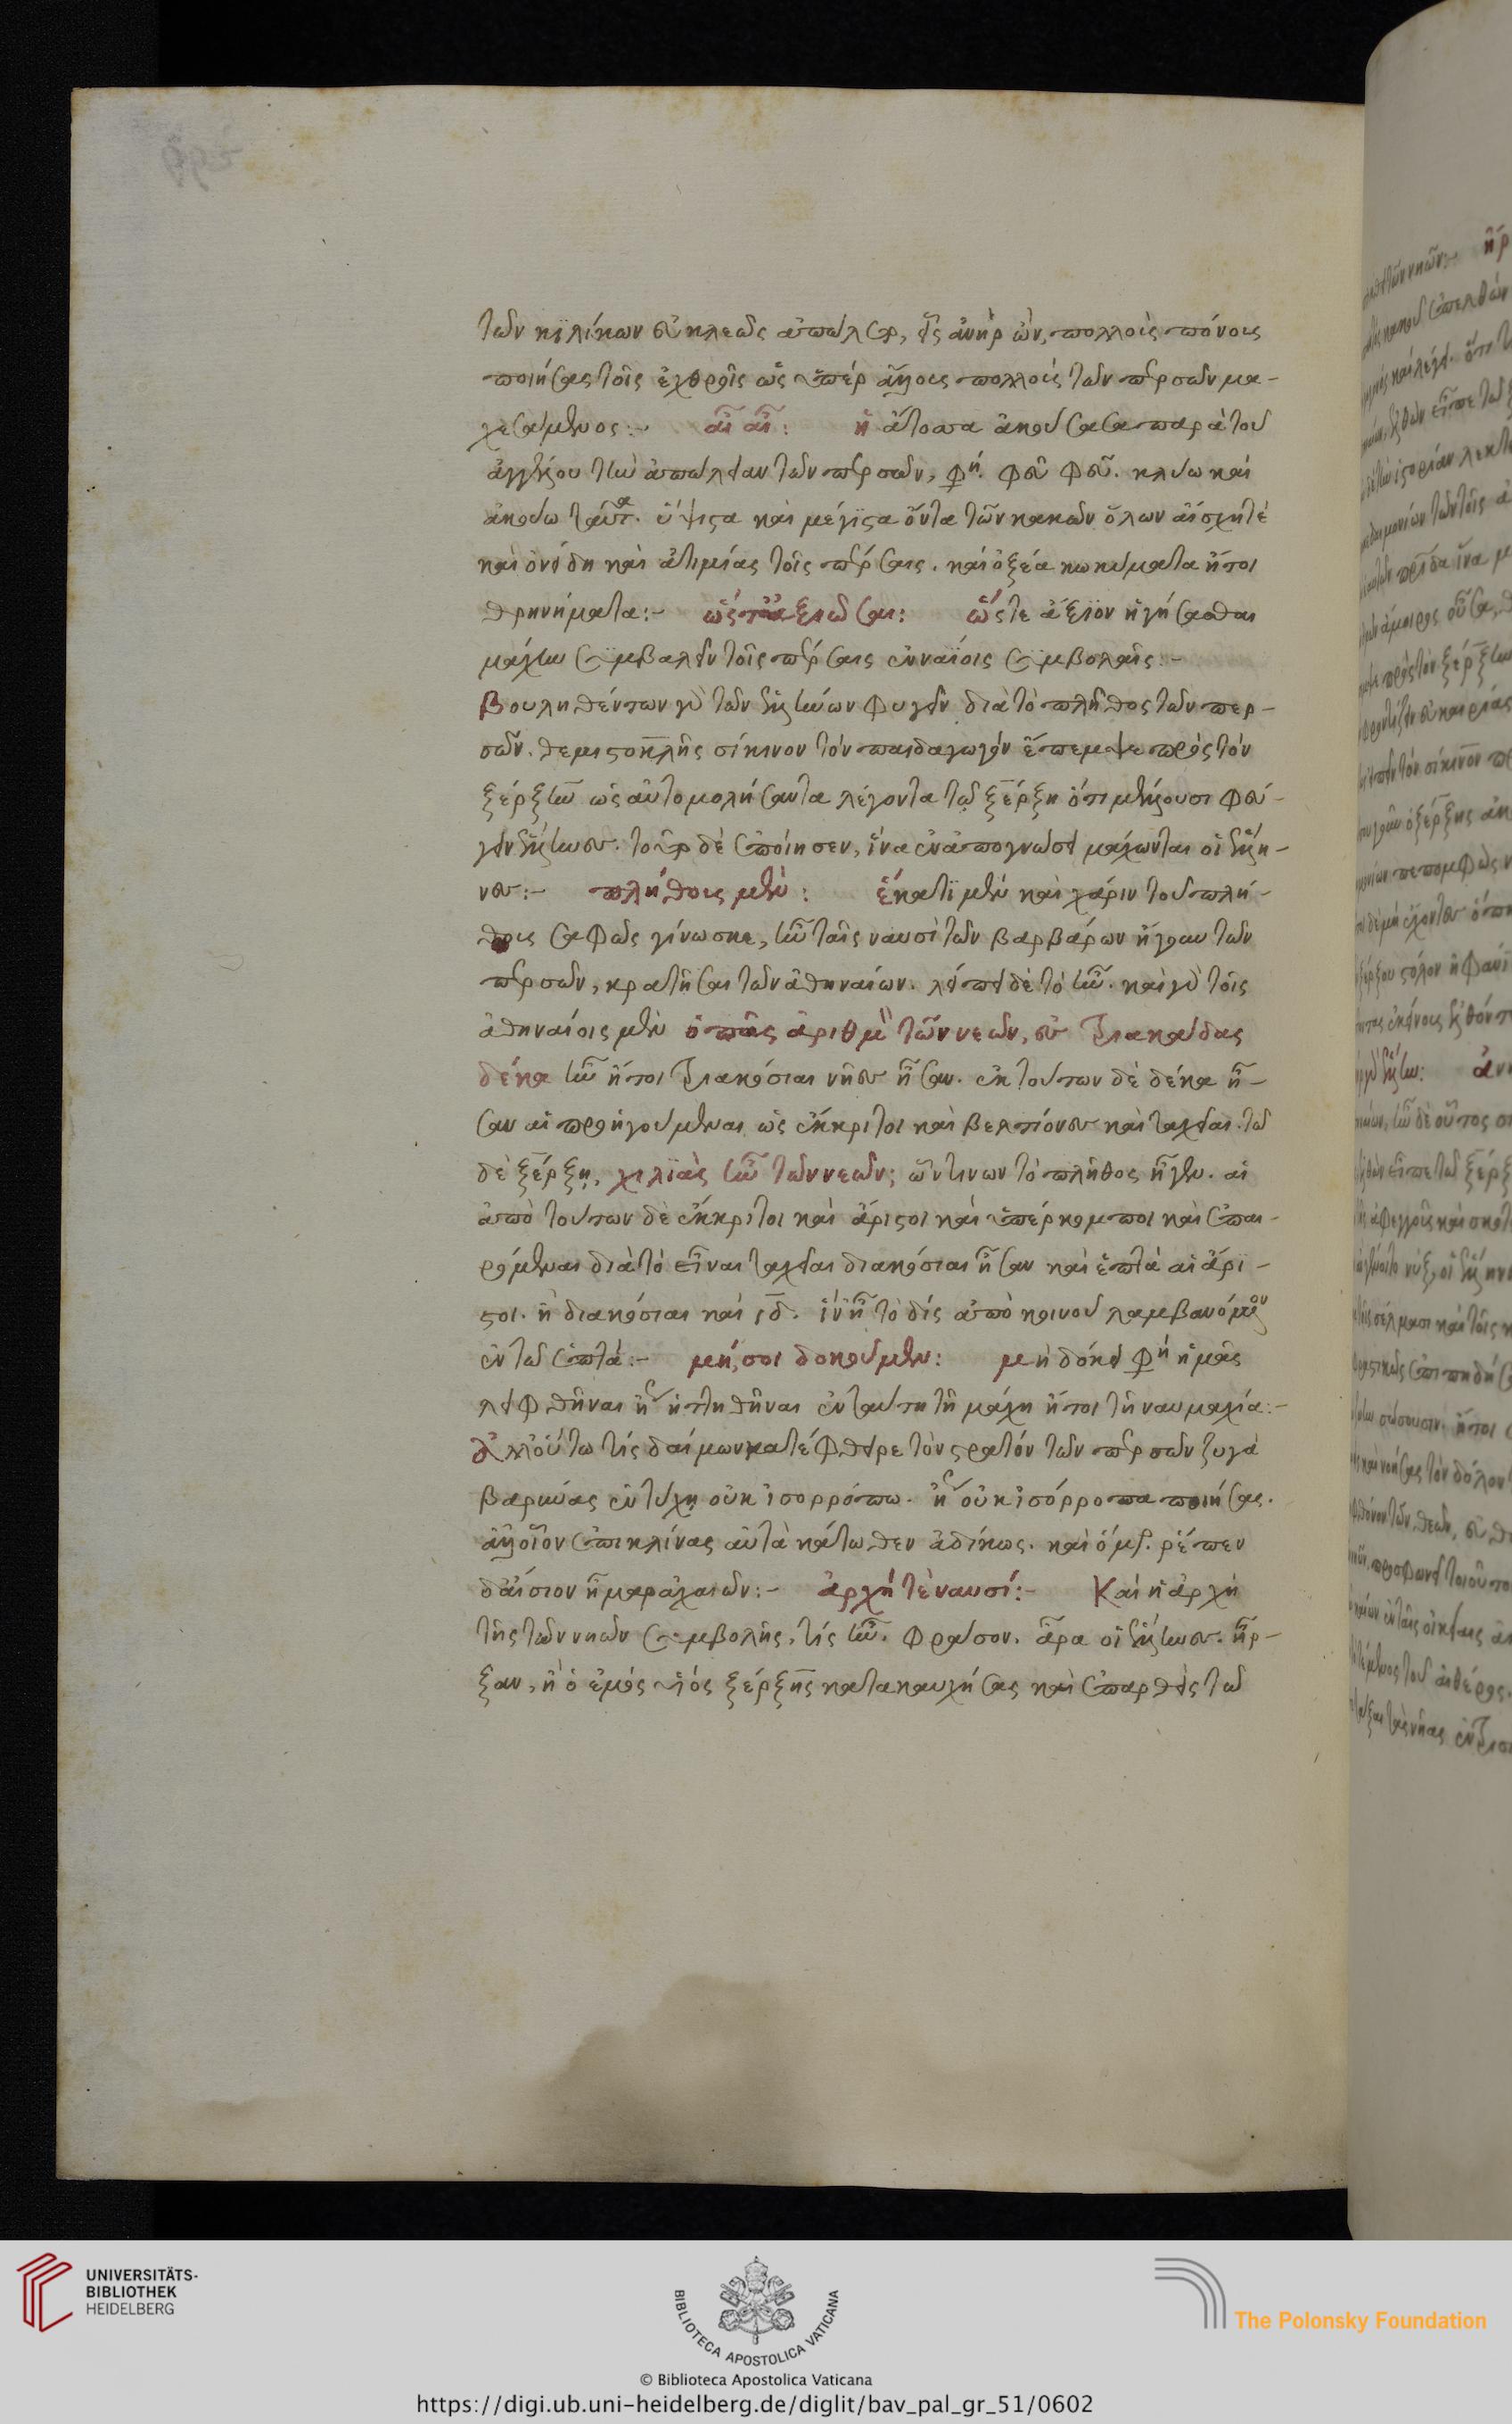 τῶν κιλίκων εὐκλεῶς ἀπώλετο, εἷς ἀνὴρ ὢν, πολλοὺς πόνους
ποιήσας τοῖς ἐχθροῖς ὡς ὑπὲρ ἄλλους πολλοὺς τῶν περσῶν μα-
χεσάμενος:- αἶ αἶ: ἡ ἄτοσσα ἀκούσασα παρὰ τοῦ
ἀγγέλου τὴν ἀπώλειαν τῶν περσῶν, φη. φεῦ φεῦ. κλύω καὶ
ἀκούω ταῦτα. ὕψιστα καὶ μέγιστα ὄντα τῶν κακῶν ὅλων αἴσχη τὲ
καὶ ὀνείδη καὶ ἀτιμίας τοῖς πέρσαις. καὶ ὀξέα κωκύματα ἤτοι
θρηνήματα:- ὥστ' ἀξιῶσαι: ὥστε ἄξιον ἡγήσασθαι
μάχην συμβαλεῖν τοῖς πέρσαις ἐν ναΐοις συμβολαῖς:-
βουληθέντων γὰρ τῶν ἑλλήνων φυγεῖν διὰ τὸ πλῆθος τῶν περ-
σῶν. θεμιστοκλῆς σίκινον τὸν παιδαγωγὸν ἔπεμψε πρὸς τὸν
ξέρξην ὡς αὐτομολήσαντα λέγοντα τῷ ξέρξῃ ὅτι μέλλουσι φεύ-
γειν ἕλληνες. τοῦτο δὲ ἐποίησεν, ἵνα ἐν ἀπογνώσει μάχωνται οἱ ἕλλη-
νες:- πλήθους μὲν: ἕκατι μὲν καὶ χάριν τοῦ πλή-
θους σαφῶς γίνωσκε, ἦν ταῖς ναυσὶ τῶν βαρβάρων ἤγουν τῶν
περσῶν, κρατῆσαι τῶν ἀθηναίων. λείπει δὲ τὸ ἦν. καὶ γὰρ τοῖς
ἀθηναίοις μὲν ὁ πᾶς ἀριθμὸς τῶν νεῶν, ἐς τριακάδας
δέκα ἦν ἤτοι τριακόσιαι νῆες ἦσαν. ἐκ τούτων δὲ δέκα ἦ-
σαν αἱ προηγούμεναι ὡς ἔκκριτοι καὶ βελτίονες καὶ ταχεῖαι. τῷ
δὲ ξέρξῃ, χιλιὰς ἦν τῶν νεῶν; ὧντινων τὸ πλῆθος ἦγεν. αἱ
ἀπὸ τούτων δὲ ἔκκριτοι καὶ ἄριστοι καὶ ὑπέρκομποι καὶ ἐπαι-
ρόμεναι διὰ τὸ εἶναι ταχεῖαι διακόσιαι ἦσαν καὶ ἑπτὰ αἱ ἄρι-
στοι. ἢ διακόσιαι καὶ ιδ. ἵν' ᾖ τὸ δὶς ἀπὸ κοινοῦ λαμβανόμενον
ἐν τῷ ἑπτά:- μή, σοι δοκοῦμεν: μὴ δόκει φη ἡμᾶς
λειφθῆναι ἢ ἡττηθῆναι ἐν ταύτῃ τῇ μάχῃ ἤτοι τῇ ναυμαχία:-
ἀλλ' οὕτω τίς δαίμων κατέφθειρε τὸν στρατόν τῶν περσῶν ζυγὰ
βαρύνας ἐν τύχῃ οὐκ ἰσορρόπω. ἢ οὐκ ἰσόρροπα ποιήσας.
ἀλλ' οἷον ἐπικλίνας αὐτὰ κάτωθεν ἀδίκως. καὶ ὅμηρος. ῥέπεν
δ' αἴσιον ἦμαρ ἀχαιῶν:- ἀρχή τὲ ναυσί:- Καὶ ἡ ἀρχὴ
τῆς τῶν νηῶν συμβολῆς, τίς ἦν. φράσον. ἆρα οἱ ἕλληνες ἦρ-
ξαν, ἢ ὁ ἐμὸς υἱός ξέρξης κατακαυχήσας καὶ ἐπαρθεὶς τῷ
UNIVERSITÄTS-
BIBLIOTHEK
HEIDELBERG
BIBLIOTECA APOSTOLICA VATICANA
The Polonsky Foundation
© Biblioteca Apostolica Vaticana
https://digi.ub.uni-heidelberg.de/diglit/bav_pal_gr_51/0602